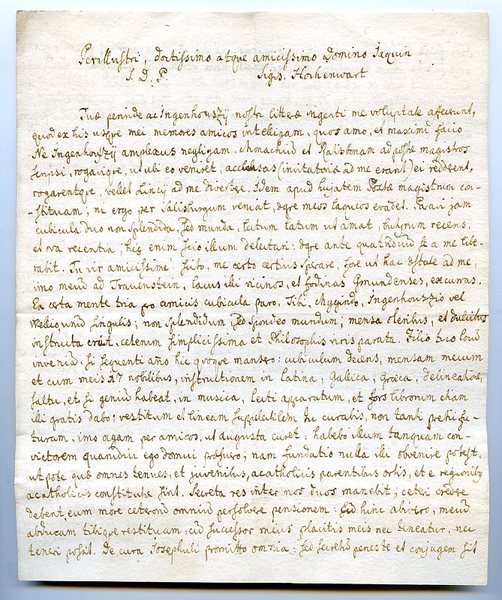 Perillustri, doctissimo atque amicissimo Domino Jaquin
S. D. P. Sigis. Hochenwart
Tuæ perinde ac Ingenhouszij nostri litteræ ingenti me voluptate affecerunt,
quod ex his usque mei memores amicos intelligam, quos amo, et maximi facio.
Ne Ingenhouszij amplexus negligam. Chmachiid et Raistman ad postæ magistros
scripsi, rogavique, ut ubi eo veniret, acclusas (invitatoria ad me erant) ei redderent,
rogarentque, vellet Lincij ad me divertere. Idem apud hujatem Postæ magistrum con-
stituam; ni ergo per Salisburgum veniat, ægre meos laqueos evadet. Paravi jam
cubicula duo non splendida, sed munda, lectum latum ut amat, butyrum recens,
et ova recentia; his enim scio illum delectari: ægre ante quatriduum se a me libe-
rabit. Tu vir amicissime! scito, me certo certius sperare, fore ut hac æstate ad me,
imo mecum ad Traunstein, lacus illi vicinos, et fodinas Gmundenses, excurras.
Ea certa mente tria pro amicis cubicula paro. Tibi, Mygindo, Ingenhouszio vel
Well singulis; non splendidum sed spondeo mundum; mensa oleribus, et dulcibus
instructa erit, ceterum simplicissima et Philosophis viris parata. Filio tuo locum
inveni. Is sequenti año hic quoque manset: cubiculum decens, mensam mecum
et cum meis 17 nobilibus, instructionem in latina, Gallica, Græca, delineatione,
saltu, et si genium habeat, in musica, lecti apparatum, et fors librorum etiam
illi gratis dabo; vestitum et lineam suppellectilem tu curabis, non tanti pretii fu-
turam, imo agam per amicos, ut augusta curet: habebo illum tanquam con-
victorem quamdiu ego domui præsum; nam fundatio nulla illi obvenire potest,
utpote quæ omnes tenues, et juvenibus, acatholicis parentibus ortis, et e regionibus
acatholicis constitutæ sint. Secreta res inter nos duos manebit; ceteri credere
debent eum more ceterorum omnium persolvere pensionem. Sed hinc abivero, mecum
abducam tibique restituam; cum successor meus placitis meis nec teneatur, nec
teneri possit. De cura Josephuli promitto omnia; sed secreto penes te et conjugem sit